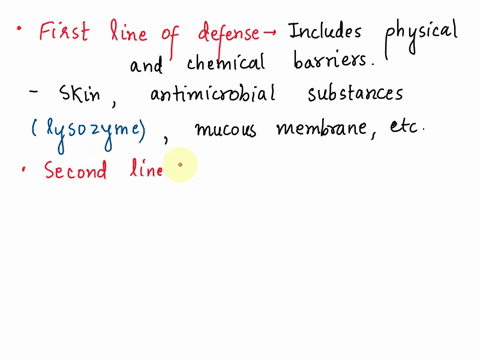 • First line of defense → Includes physical
and chemical barriers.
- Skin, antimicrobial substances
(lysozyme), mucous membrane, etc.
• Second line